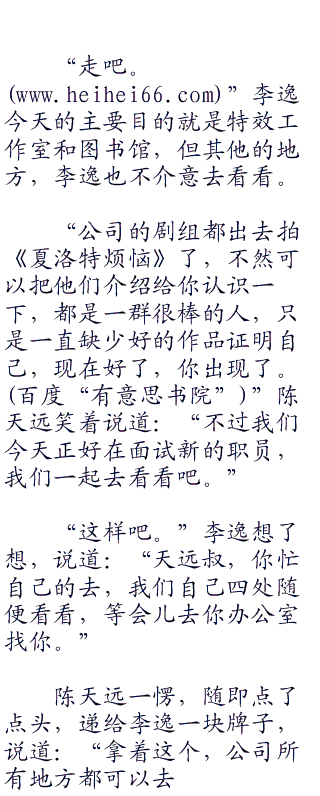 “走吧。
(www.heihei66.com)”李逸
今天的主要目的就是特效工
作室和图书馆，但其他的地
方，李逸也不介意去看看。
“公司的剧组都出去拍
《夏洛特烦恼》了，不然可
以把他们介绍给你认识一
下，都是一群很棒的人，只
是一直缺少好的作品证明自
己，现在好了，你出现了。
(百度“有意思书院”)”陈
天远笑着说道：“不过我们
今天正好在面试新的职员，
我们一起去看看吧。”
“这样吧。”李逸想了
想，说道：“天远叔，你忙
自己的去，我们自己四处随
便看看，等会儿去你办公室
找你。”
陈天远一愣，随即点了
点头，递给李逸一块牌子，
说道：“拿着这个，公司所
有地方都可以去